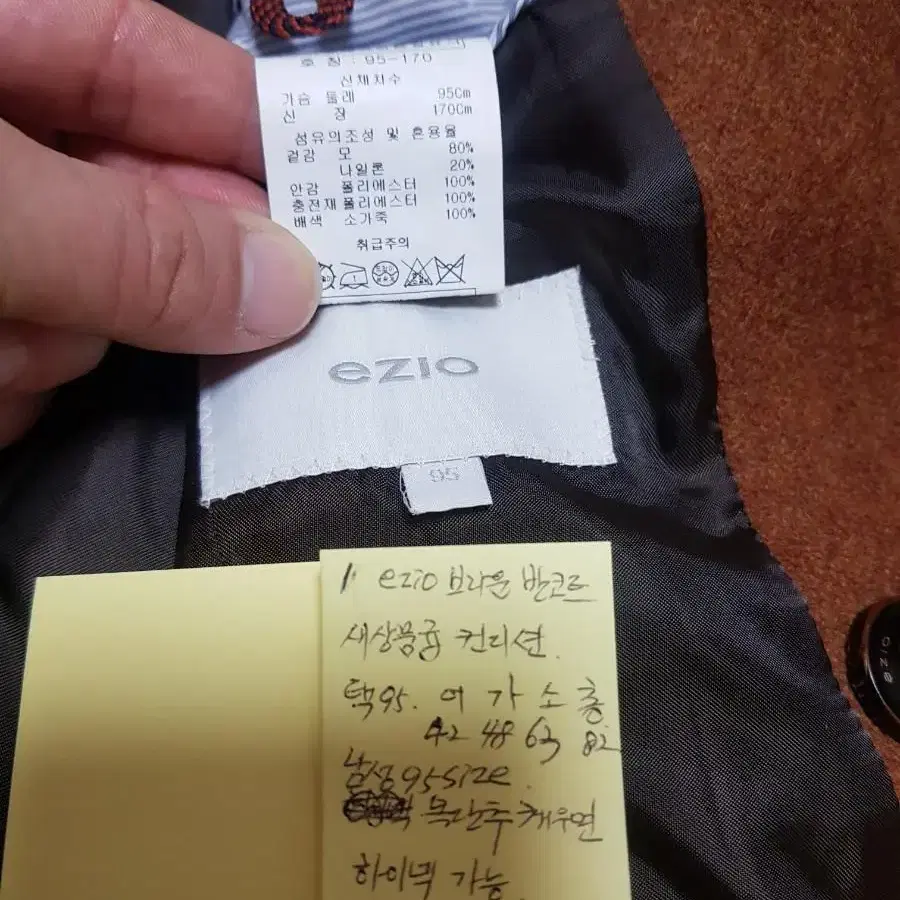 호 칭 : 95-170
신체치수
가슴 둘레 95Cm
신 장 170Cm
섬유의조성 및 혼용율
겉감 모 80%
나일론 20%
안감 폴리에스터 100%
충전재 폴리에스터 100%
배색 소가죽 100%
취급주의
ezio
95
ezio 브라운 반코트
새상품급 컨디션.
택95. 어 가 소 총.
42 48 63 82
남성 95 size.
목단추 채우면
하이넥 가능.
ezio